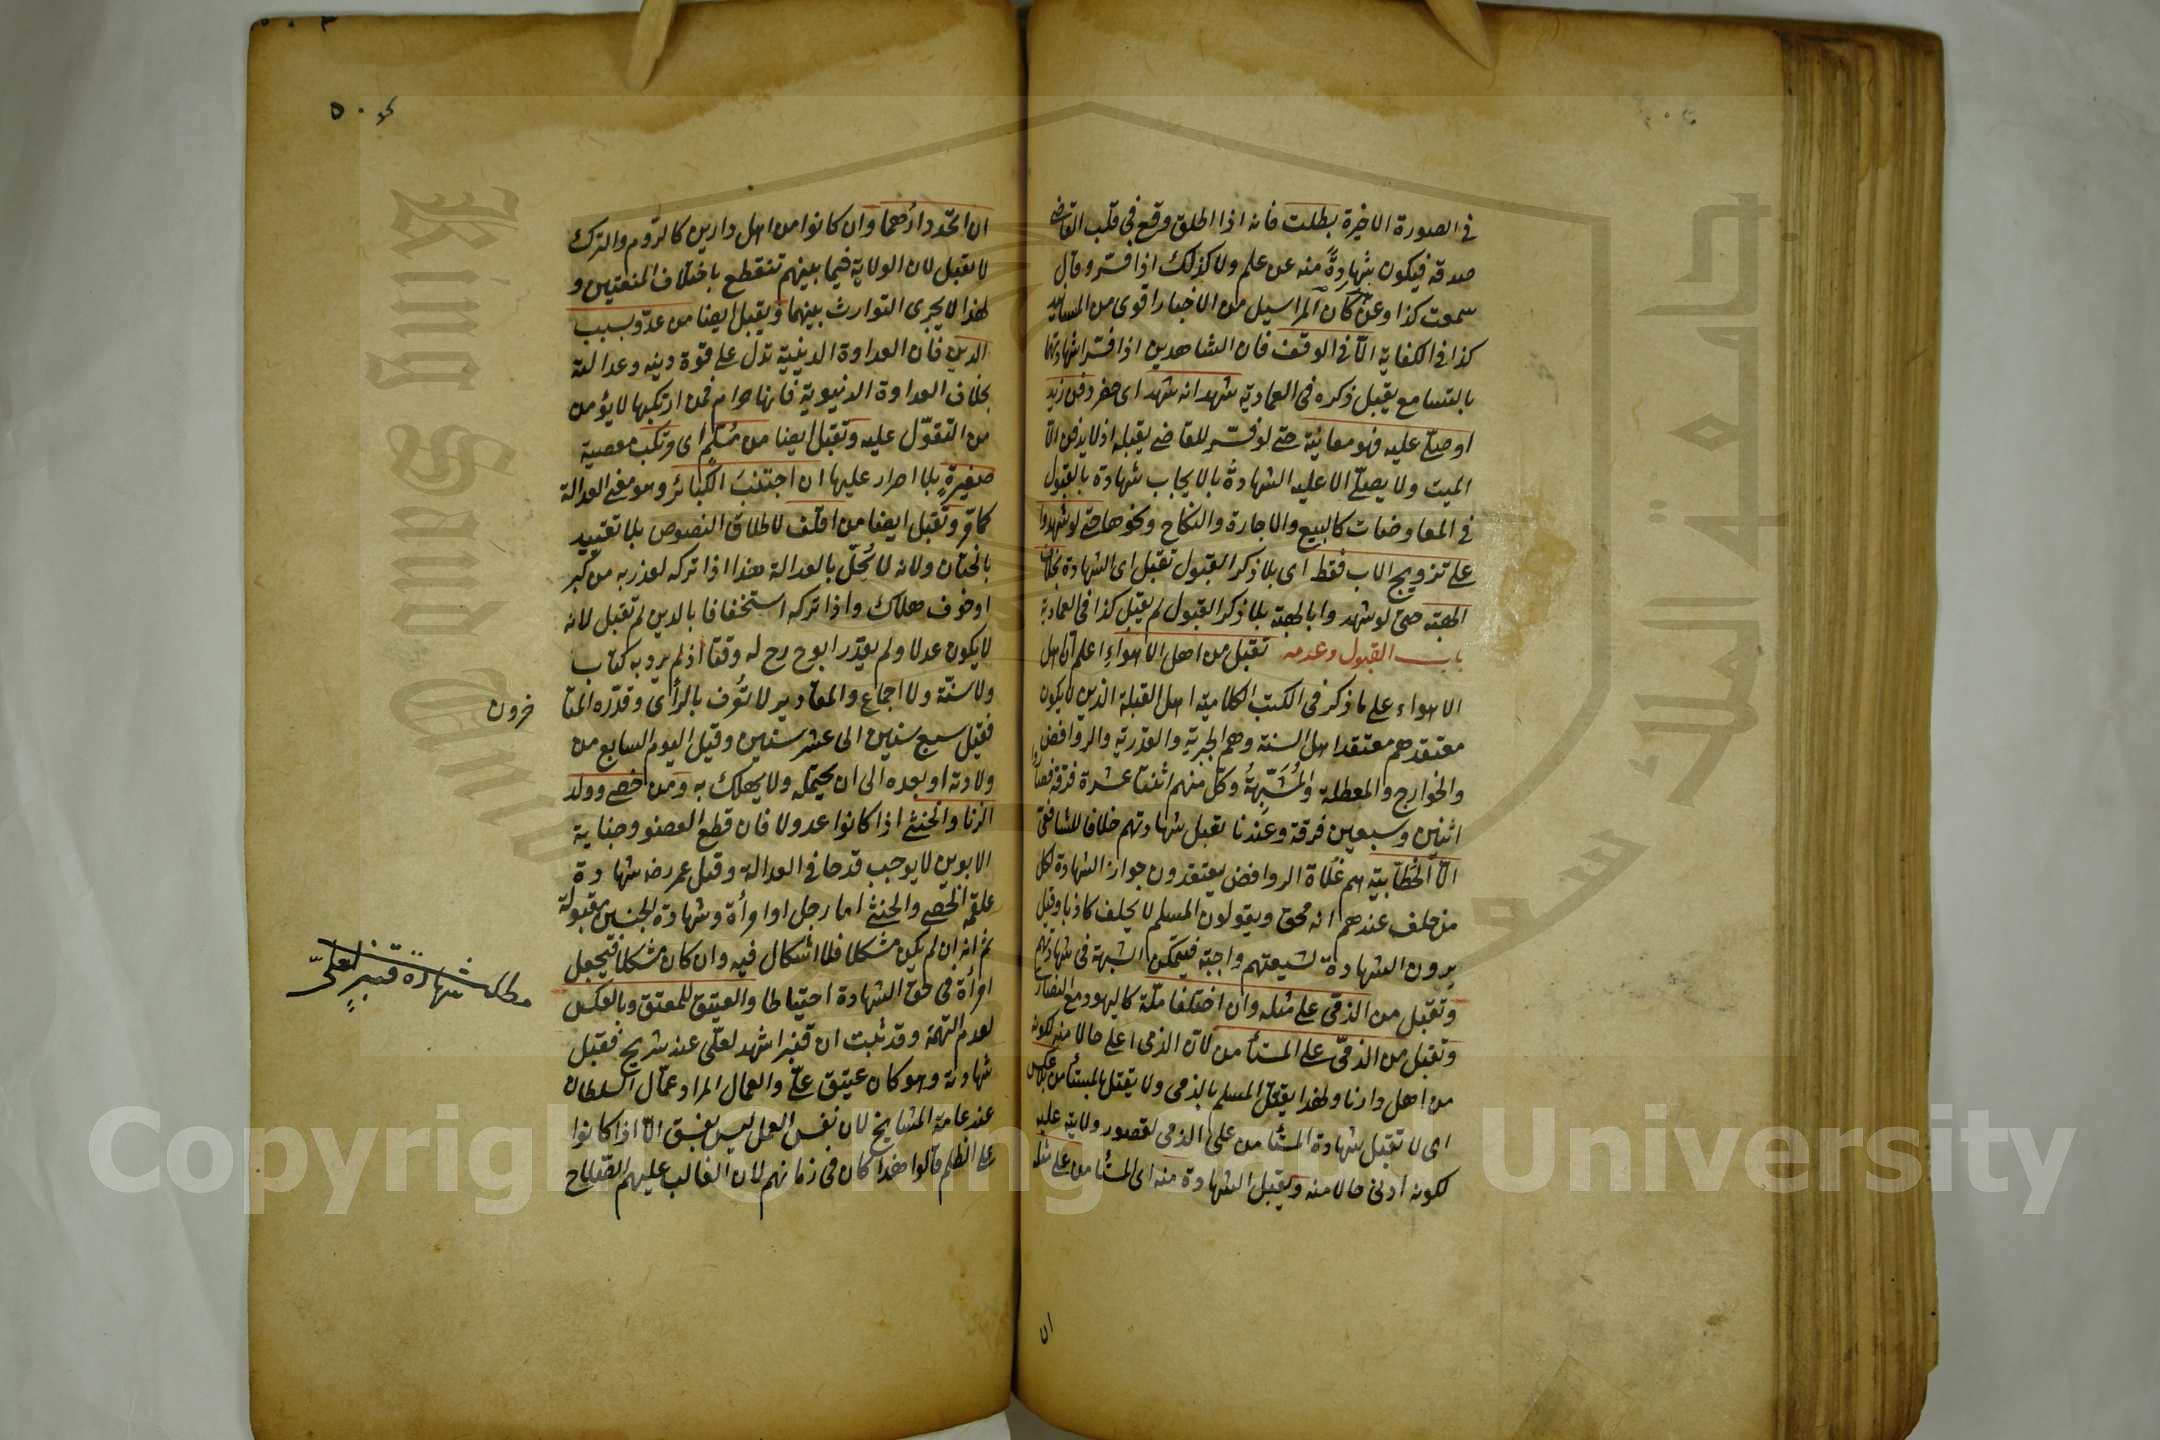 في الصورة الاخيرة بطلت فانه اذا اطلق وقع في قلب القاضي
صدقه فيكون شهادةً منه عن علم ولا كذلك اذا فسر وقال
سمعت كذا وعن كان المراسيل من الاخبار اقوى من المسانيد
كذا في الكفاية الا في الوقف فان الشاهدين اذا فسرا شهادتهما
بالتسامع يقبل ذكره في العمادية شهد انه شهد اى حضر دفن زيد
او صلى عليه فهو معاينة حتى لو فسر للقاضي يقبله اذ لا يدفن الا
الميت ولا يصلى الا عليه الشهادةُ بالايجاب شهادة بالقبول
في المعاوضات كالبيع والاجارة والنكاح ونحوها حتى لو شهدوا
على تزويج الاب فقط اى بلا ذكر القبول تقبل اى الشهادة بخلاف
الهبة حتى لو شهدوا بالهبة بلا ذكر القبول لم يقبل كذا في العمادية
باب القبول وعدمه تقبل من اهل الاهواء اعلم ان اهل
الاهواء على ما ذكر في الكتب الكلامية اهل القبلة الذين لا يكون
معتقدهم معتقد اهل السنة وهم الجبرية والقدرية والروافض
والخوارج والمعطلة والمُشَبِّهةُ وكل منهم اثنتا عشرة فرقة فصاروا
اثنين وسبعين فرقة وعندنا يقبل شهادتهم خلافا للشافعي
الا الخطّابية هم غلاة الروافض يعتقدون جواز الشهادة لكل
من حلف عندهم انه محق ويقولون المسلم لا يحلف كاذبا وقيل
يرون الشهادة لشيعتهم واجبة فيتمكن الشبهة في شهادتهم
وتقبل من الذمي على مثله وان اختلفا ملّة كاليهود مع النصارى
وتقبل من الذمي على المستأمن لان الذمي اعلى حالا منه لكونه
من اهل دارنا ولهذا يقتل المسلم بالذمي ولا يقتل بالمستأمن بلا عكس
اى لا تقبل شهادة المستأمن على الذمي لقصور ولايته عليه
لكونه ادنى حالا منه ويقبل الشهادة منه اى المستأمن على مثله
ان
٥٠٤
ان اتحد دارُهما وان كانوا من اهل دارين كالروم والترك
لا يقبل لان الولاية فيما بينهم تنقطع باختلاف المنعتين و
لهذا لا يجرى التوارث بينهما وتقبل ايضا من عدوّ بسبب
الدين فان العداوة الدينية تدل على قوة دينه وعدالته
بخلاف العداوة الدنيوية فانها حرام فمن ارتكبها لا يؤمن
من التقوّل عليه وتقبل ايضا من مُسلم اى مرتكب معصية
صغيرةٍ بلا اصرار عليها ان اجتنب الكبائر وهو معنى العدالة
كما مر وتقبل ايضا من اقلف لاطلاق النصوص بلا تقييد
بالختان ولانه لا يُخلّ بالعدالة هذا اذا تركه لعذر به من كبر
او خوف هلاك واذا تركه استخفافا بالدين لم تقبل لانه
لا يكون عدلا ولم يقدّر ابو ح رح له وقتا اذ لم يرد به كتاب
ولا سنّة ولا اجماع والمقادير لا تُعرف بالرأى وقدّره المتأ
خرون
فقيل سبع سنين الى عشر سنين وقيل اليوم السابع من
ولادته او بعده الى ان يحتمله ولا يهلك به ومن خصي وولد
الزنا والخنثى اذا كانوا عدولا فان قطع العضو وجناية
الابوين لا يوجب قدحا في العدالة وقبل عمر رضه شهادة
علقمة الخصي والخنثى اما رجل او امرأة وشهادة الجنسين مقبولة
ثم انه ان لم يكن مشكلا فلا اشكال فيه وان كان مشكلا فيجعل
امرأة في حق الشهادة احتياطا والعتيق للمعتق وبالعكس
لعدم التهمة وقد ثبت ان قنبرا شهد لعلى عند شريح فقبل
شهادته وهو كان عتيق علىّ والعمال المراد عمّال السلطان
عند عامة المشايخ لان نفس العمل ليس بفسق الا اذا كانوا
على الظلم قالوا هذا كان في زمانهم لان الغالب عليهم الصّلاح
مطلب شهادة قنبرٍ لعلىّ
King Saud University
جامعة الملك سعود
Copyright © King Saud University